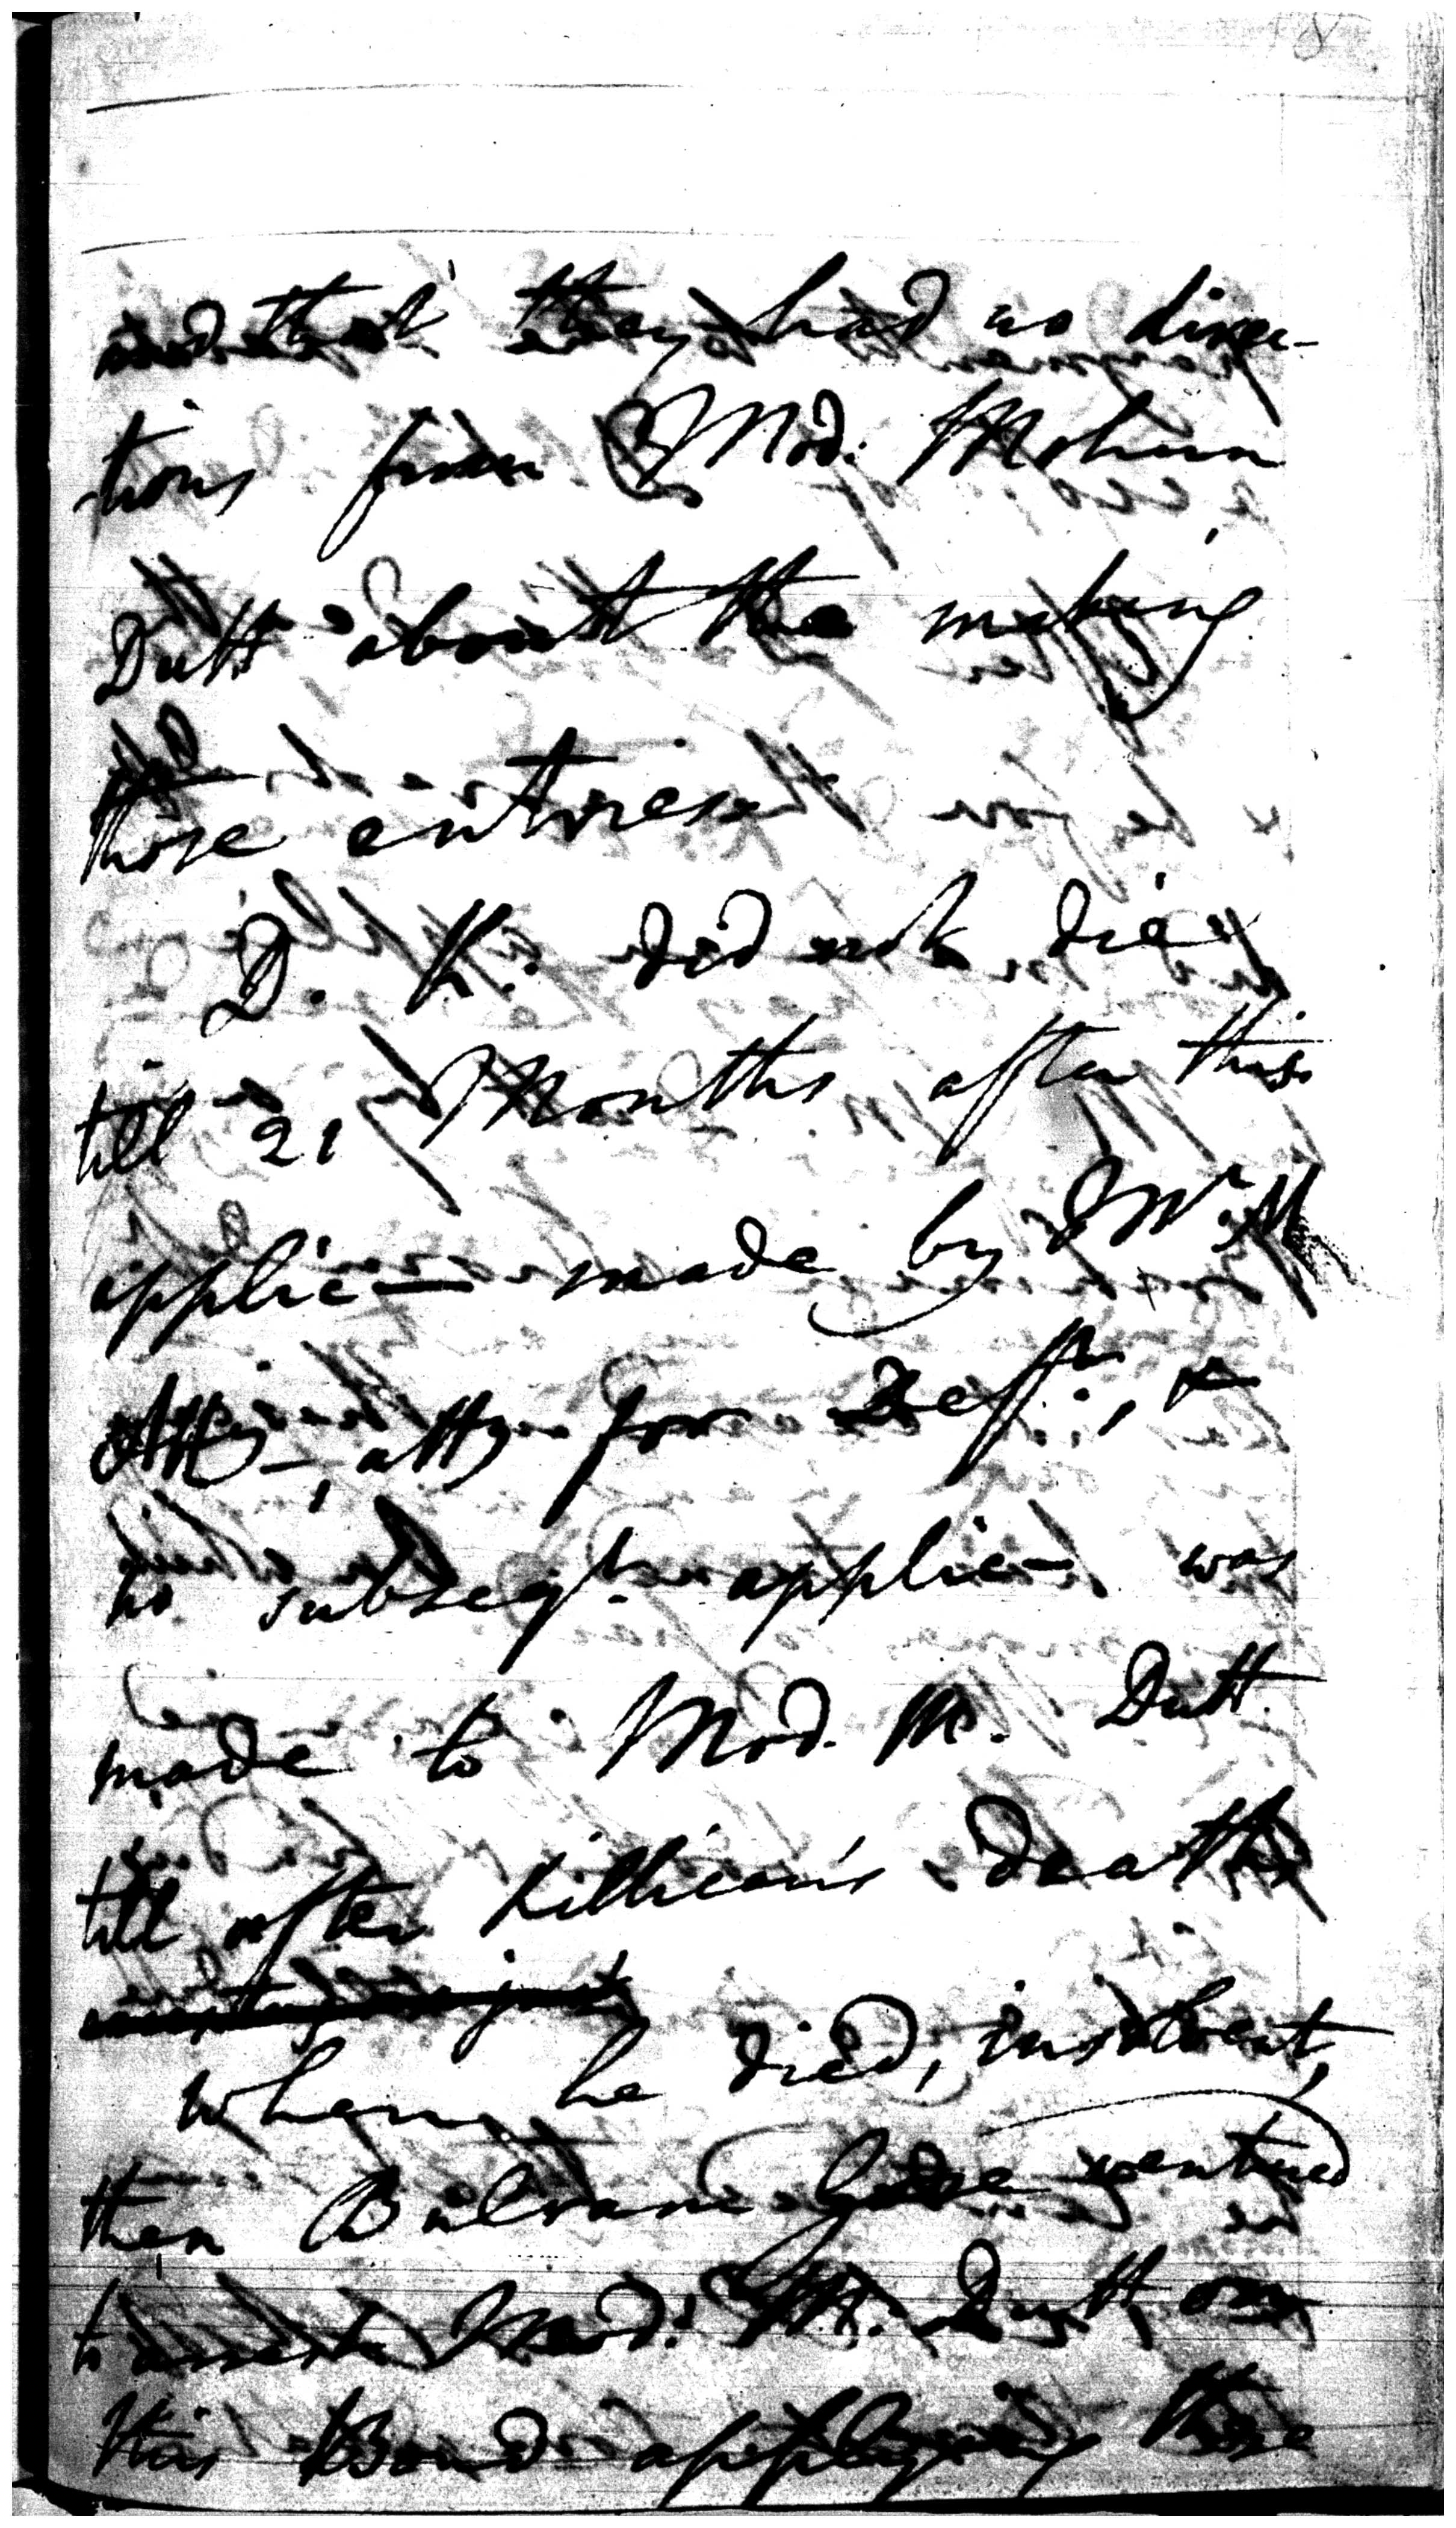 and that they had no direc-
tions from Mod. Mohun
Dutt about the making
those entries
D. K. did not die
till 21 Months after this
applic— made by Mr. M
atty for Deft., &
no subseqt. applic— was
made to Mod. M. Dutt
till after Killican's death
when he died, insolvent,
then Bulram Gose ventured
to Mod. M. Dutt on
this Bond applying those